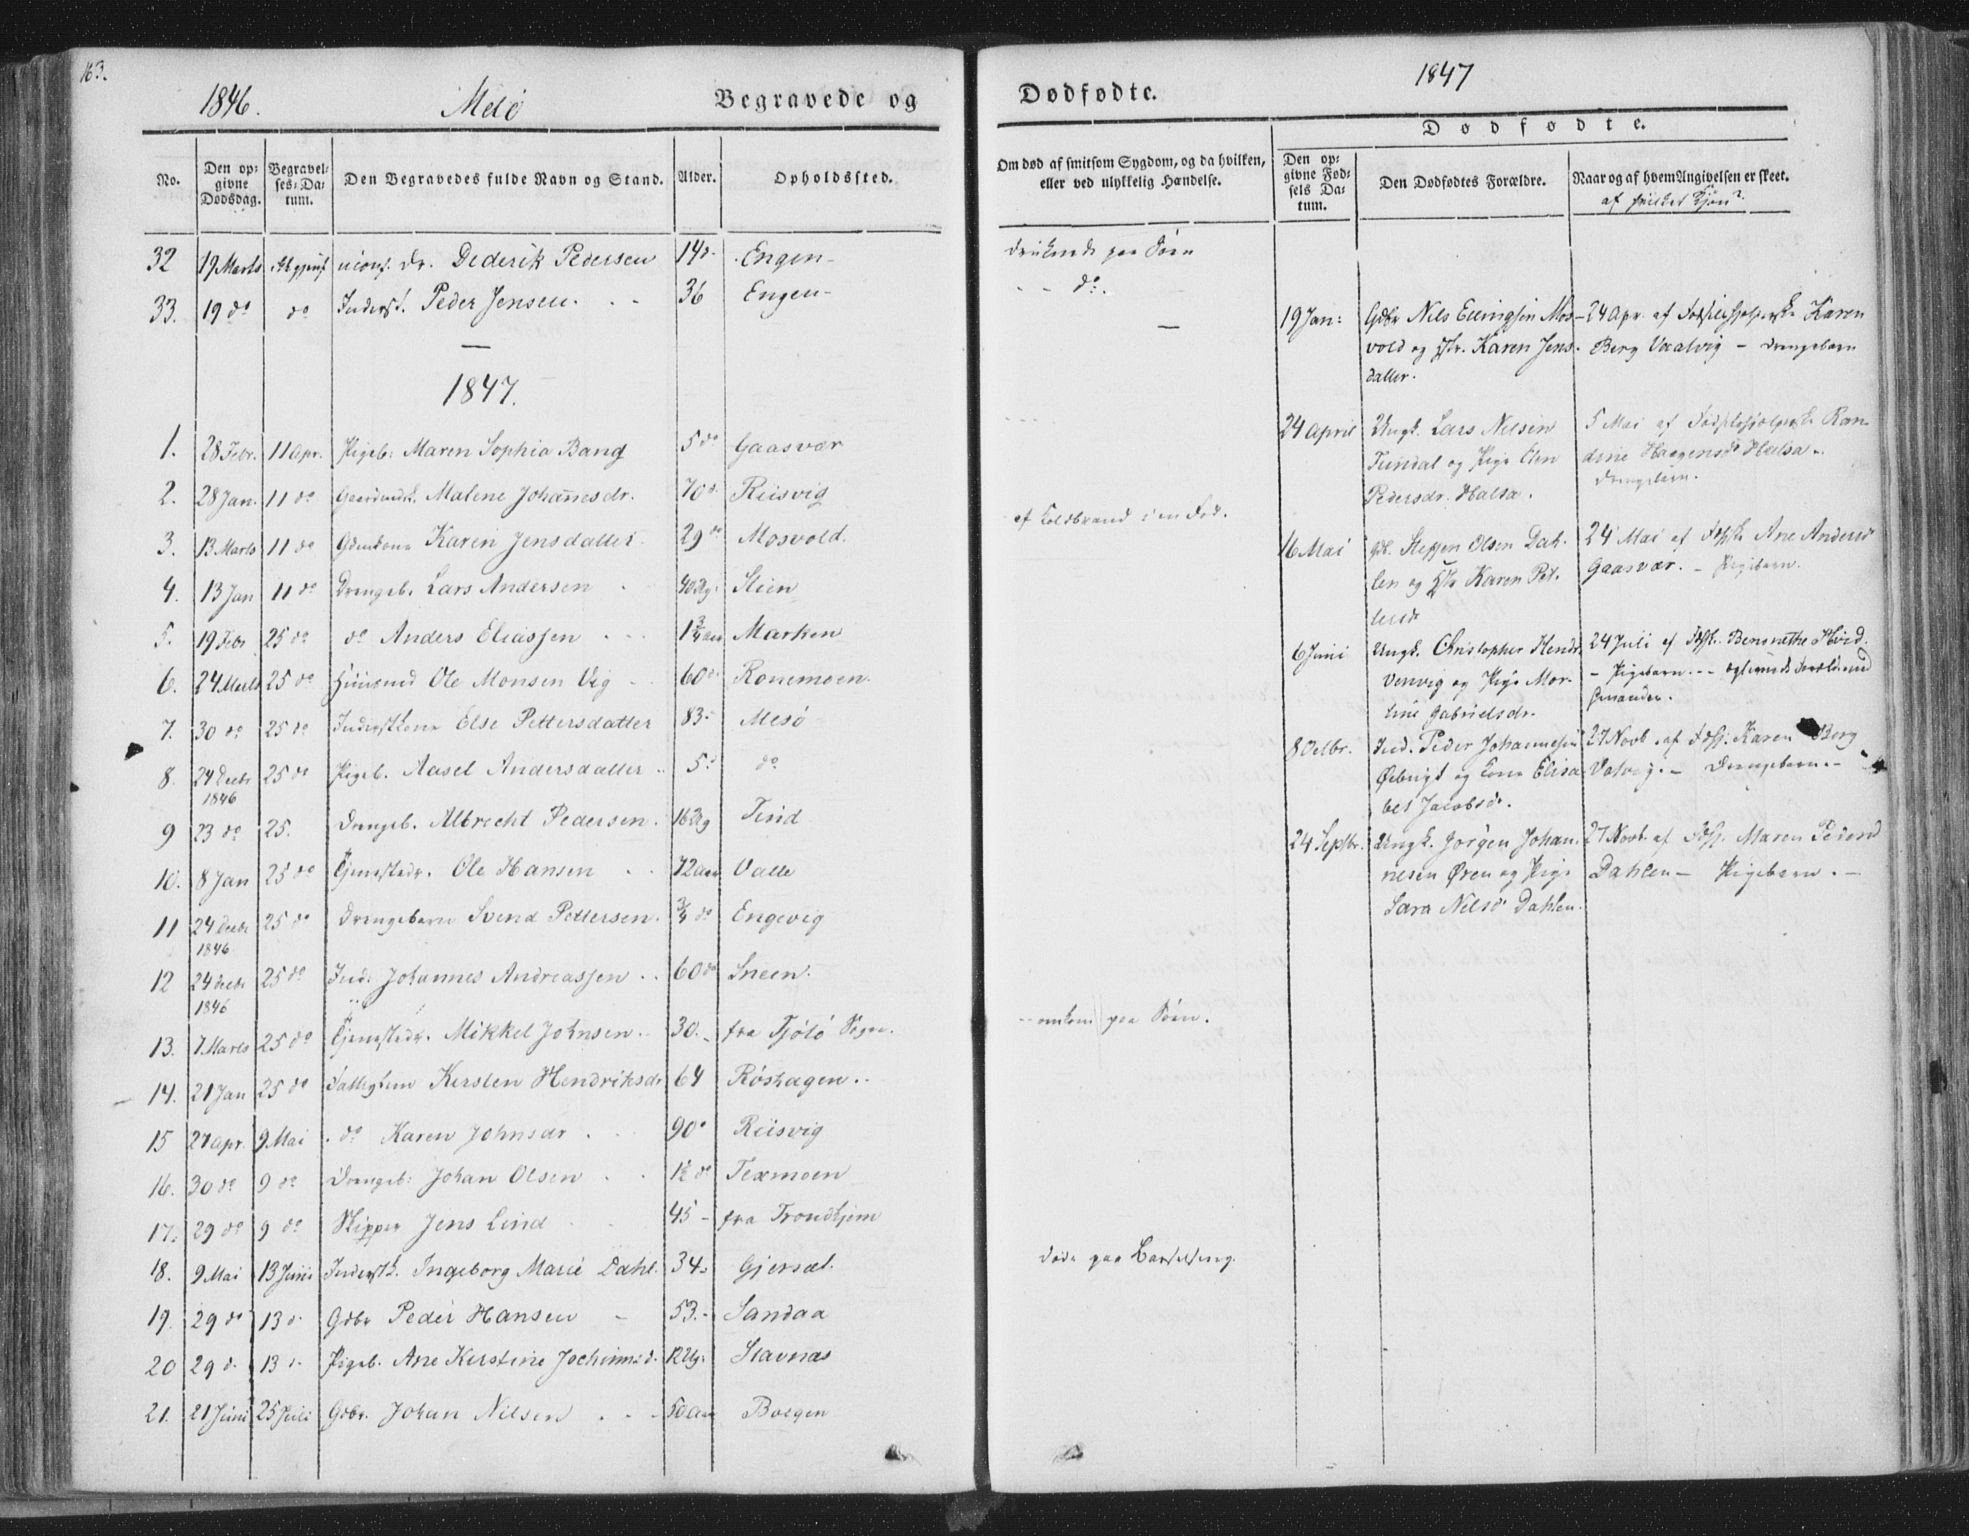 163.
1846. Melö Begravede og
No. Den op=givne Dødsdag. Begravel=ses=Da=tum. Den Begravedes fulde Navn og Stand. Alder. Opholdssted.
32 19 Marts Dr. Dederik Pedersen 14 d. Engen
33. 19 do do Inderst. Peder Jensen. 36 Engen
1847.
1. 28 Febr. 11 Apr. Pigeb: Maren Sophia Bang 5 do Gaasvær
2. 28 Jan. 11 do Malene Johannesdr. 70 d. Riisvig
3. 13 Marts 11 do Karen Jensdatter 29 do Mosvold.
4. 13 Jan 11 do Drengb. Lars Andersen Stien
5. 19 Febr 25 do do Anders Eliassen 1 3/4 aar Marken
6. 24 Marts 25 do Huusmd Ole Monsen Vig 60 d. Ronemoen.
7. 30 do 25 do Inderstkone Else Pettersdatter 83. Mesö
8. 24 Decbr 1846 25 do Pigeb. Aasel Andersdatter 5. do
9 23 do 25. Drengeb. Albrecht Pedersen. 16 Dg Tind
10. 8 Jan 25 do Tjenestedr. Ole Hansen 72 aar Valle
11 24 Decbr 1846 25 do Drengebarn Svend Pettersen. 3/4 do Engevig
12 24 Decbr 1846 25 do Ind. Johannes Andreassen 60 do Sneen.
13. 7 Marts 25 do Tjenestedr. Mikkel Johnsen 30. fra Tjötö Sogn.
14. 21 Jan 25 do Fattiglem Kersten Hendriksdr 64 Röshagen.
15 27 Apr. 9 Mai do Karen Johnsdr 90 Riisvig
16. 30 do 9 do Drengeb: Johan Olsen 1 1/2 do Texmoen
17. 29 do 9 do Skipper Jens Lind 45 fra Trondhjem
18. 9 Mai 13 Juni Inderstk. Ingeborg Marie Dahl. 34. Gjersæt.
19. 29 do 13 d. Gdbr Peder Hansen 53. Sandaa
20 29 d. 13 Pigeb. Ane Kirstine Jochimsd. 12 Stavnæs
21. 21 Juni 25 Juli Gdbr. Johan Nilsen 50 Aar Bolgen
Dødfødte. 1847
Om død af smitsom Sygdom, og da hvilken, eller ved ulykkelig Hændelse.
Dødfødte.
Den op=givne Fød=sels Da=tum. Den Dødfødtes Forældre. Naar og af hvem Angivelsen er skeet.
af hvilket Kjøn?
druknede paa Söen
do.
af Koldbrand i en Fod.
omkom paa Söen.
Døde paa Barselseng.
19 Jan: Gdbr Nils Ellingsen Mos- 24 Apr. af Karen
vold og Hstr. Karen Jens- Berg Vaalvig - Drengebarn
datter.
24 April Ungk. Lars Nilsen 5 Mai af Ran-
Tundal og Pige Elen dine Haagensdr Halsa.
Pedersdr. Halsa. Drengebarn.
16 Mai Steffen Olsen Dah- 24 Mai af Ane Andersd
len og Hstr Karen Pet- Gaasvær. - Pigebarn.
6 Juni Ungk. Christopher Hendr. 24 Juli af
Venvig og Pige Mar- - Pigebarn.
line Gabrielsdr.
8 Octbr. Ind. Peder Johannesen 27 Novb. af Karen Berg
og Kone Elisa- Valvig. - Drengebarn.
bet Jacobsdr.
24 Septbr. Ungk. Jörgen Johan- 27 Novb af Maren Pedersd
nesen Ören og Pige Dahlen - Pigebarn.
Sara Nelsdr Dahlen.